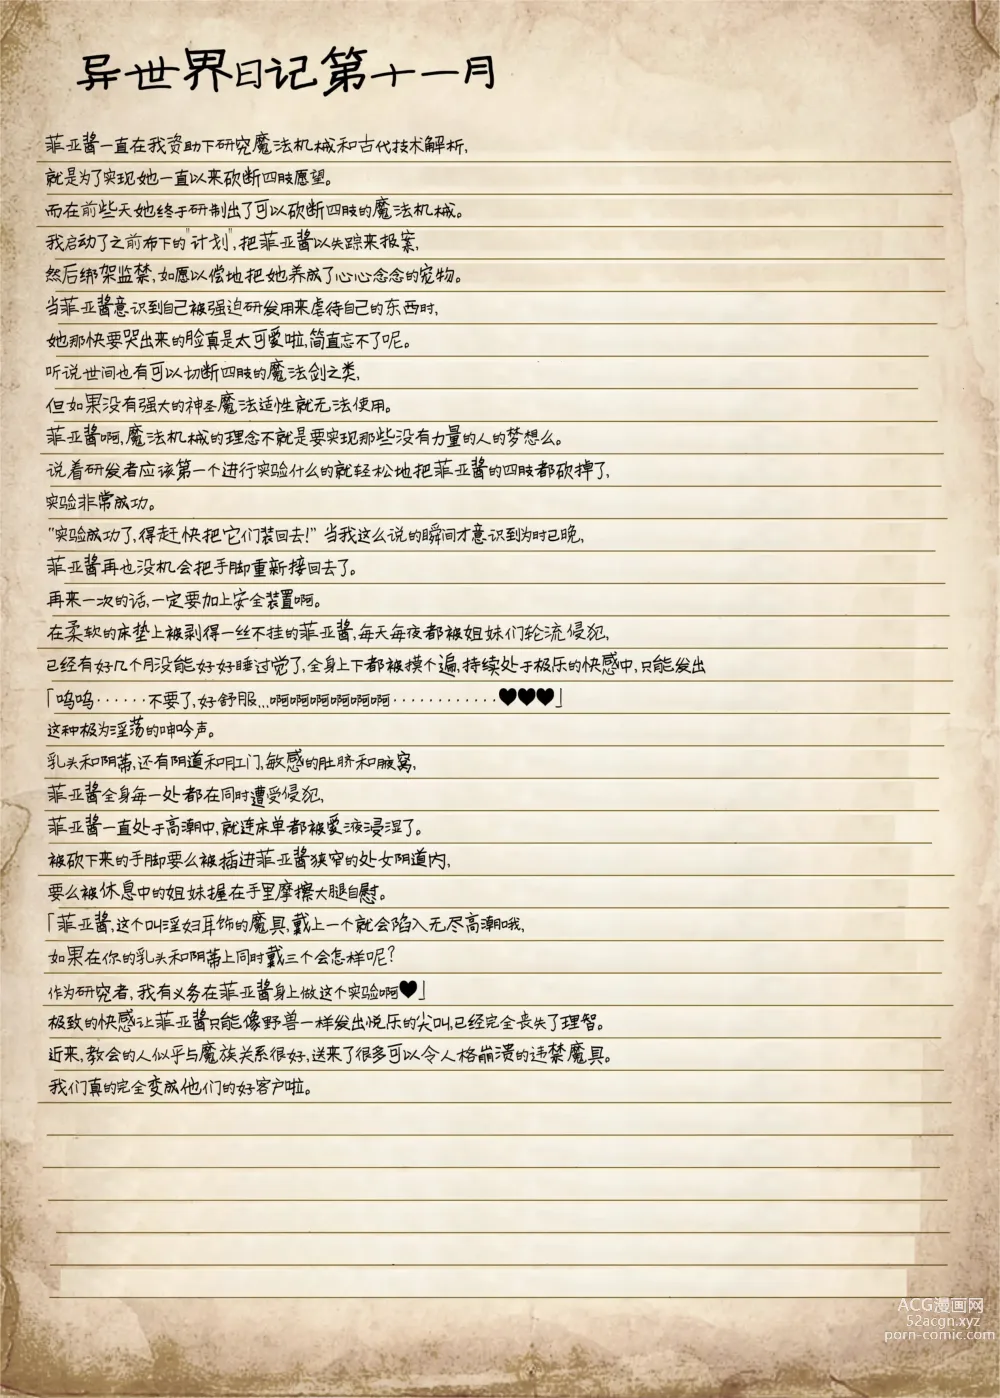 异世界日记第十一月
菲亚酱一直在我资助下研究魔法机械和古代技术解析,
就是为了实现她一直以来砍断四肢愿望。
而在前些天她终于研制出了可以砍断四肢的魔法机械。
我启动了之前布下的"计划",把菲亚酱以失踪来报案,
然后绑架监禁,如愿以偿地把她养成了心心念念的宠物。
当菲亚酱意识到自己被强迫研发用来虐待自己的东西时,
她那快要哭出来的脸真是太可爱啦,简直忘不了呢。
听说世间也有可以切断四肢的魔法剑之类,
但如果没有强大的神圣魔法适性就无法使用。
菲亚酱啊,魔法机械的理念不就是要实现那些没有力量的人的梦想么。
说着研发者应该第一个进行实验什么的就轻松地把菲亚酱的四肢都砍掉了,
实验非常成功。
"实验成功了,得赶快把它们装回去!" 当我这么说的瞬间才意识到为时已晚,
菲亚酱再也没机会把手脚重新接回去了。
再来一次的话,一定要加上安全装置啊。
在柔软的床垫上被剥得一丝不挂的菲亚酱,每天每夜都被姐妹们轮流侵犯,
已经有好几个月没能好好睡过觉了,全身上下都被摸个遍,持续处于极乐的快感中,只能发出
「呜呜······不要了,好舒服...啊啊啊啊啊啊············♥♥♥」
这种极为淫荡的呻吟声。
乳头和阴蒂,还有阴道和肛门,敏感的肚脐和腋窝,
菲亚酱全身每一处都在同时遭受侵犯,
菲亚酱一直处于高潮中,就连床单都被爱液浸湿了。
被砍下来的手脚要么被插进菲亚酱狭窄的处女阴道内,
要么被休息中的姐妹握在手里摩擦大腿自慰。
「菲亚酱,这个叫淫妇耳饰的魔具,戴上一个就会陷入无尽高潮哦,
如果在你的乳头和阴蒂上同时戴三个会怎样呢?
作为研究者,我有义务在菲亚酱身上做这个实验啊♥」
极致的快感让菲亚酱只能像野兽一样发出悦乐的尖叫,已经完全丧失了理智。
近来,教会的人似乎与魔族关系很好,送来了很多可以令人格崩溃的违禁魔具。
我们真的完全变成他们的好客户啦。
ACG漫画网
52acgn.xyz
porn-comic.com